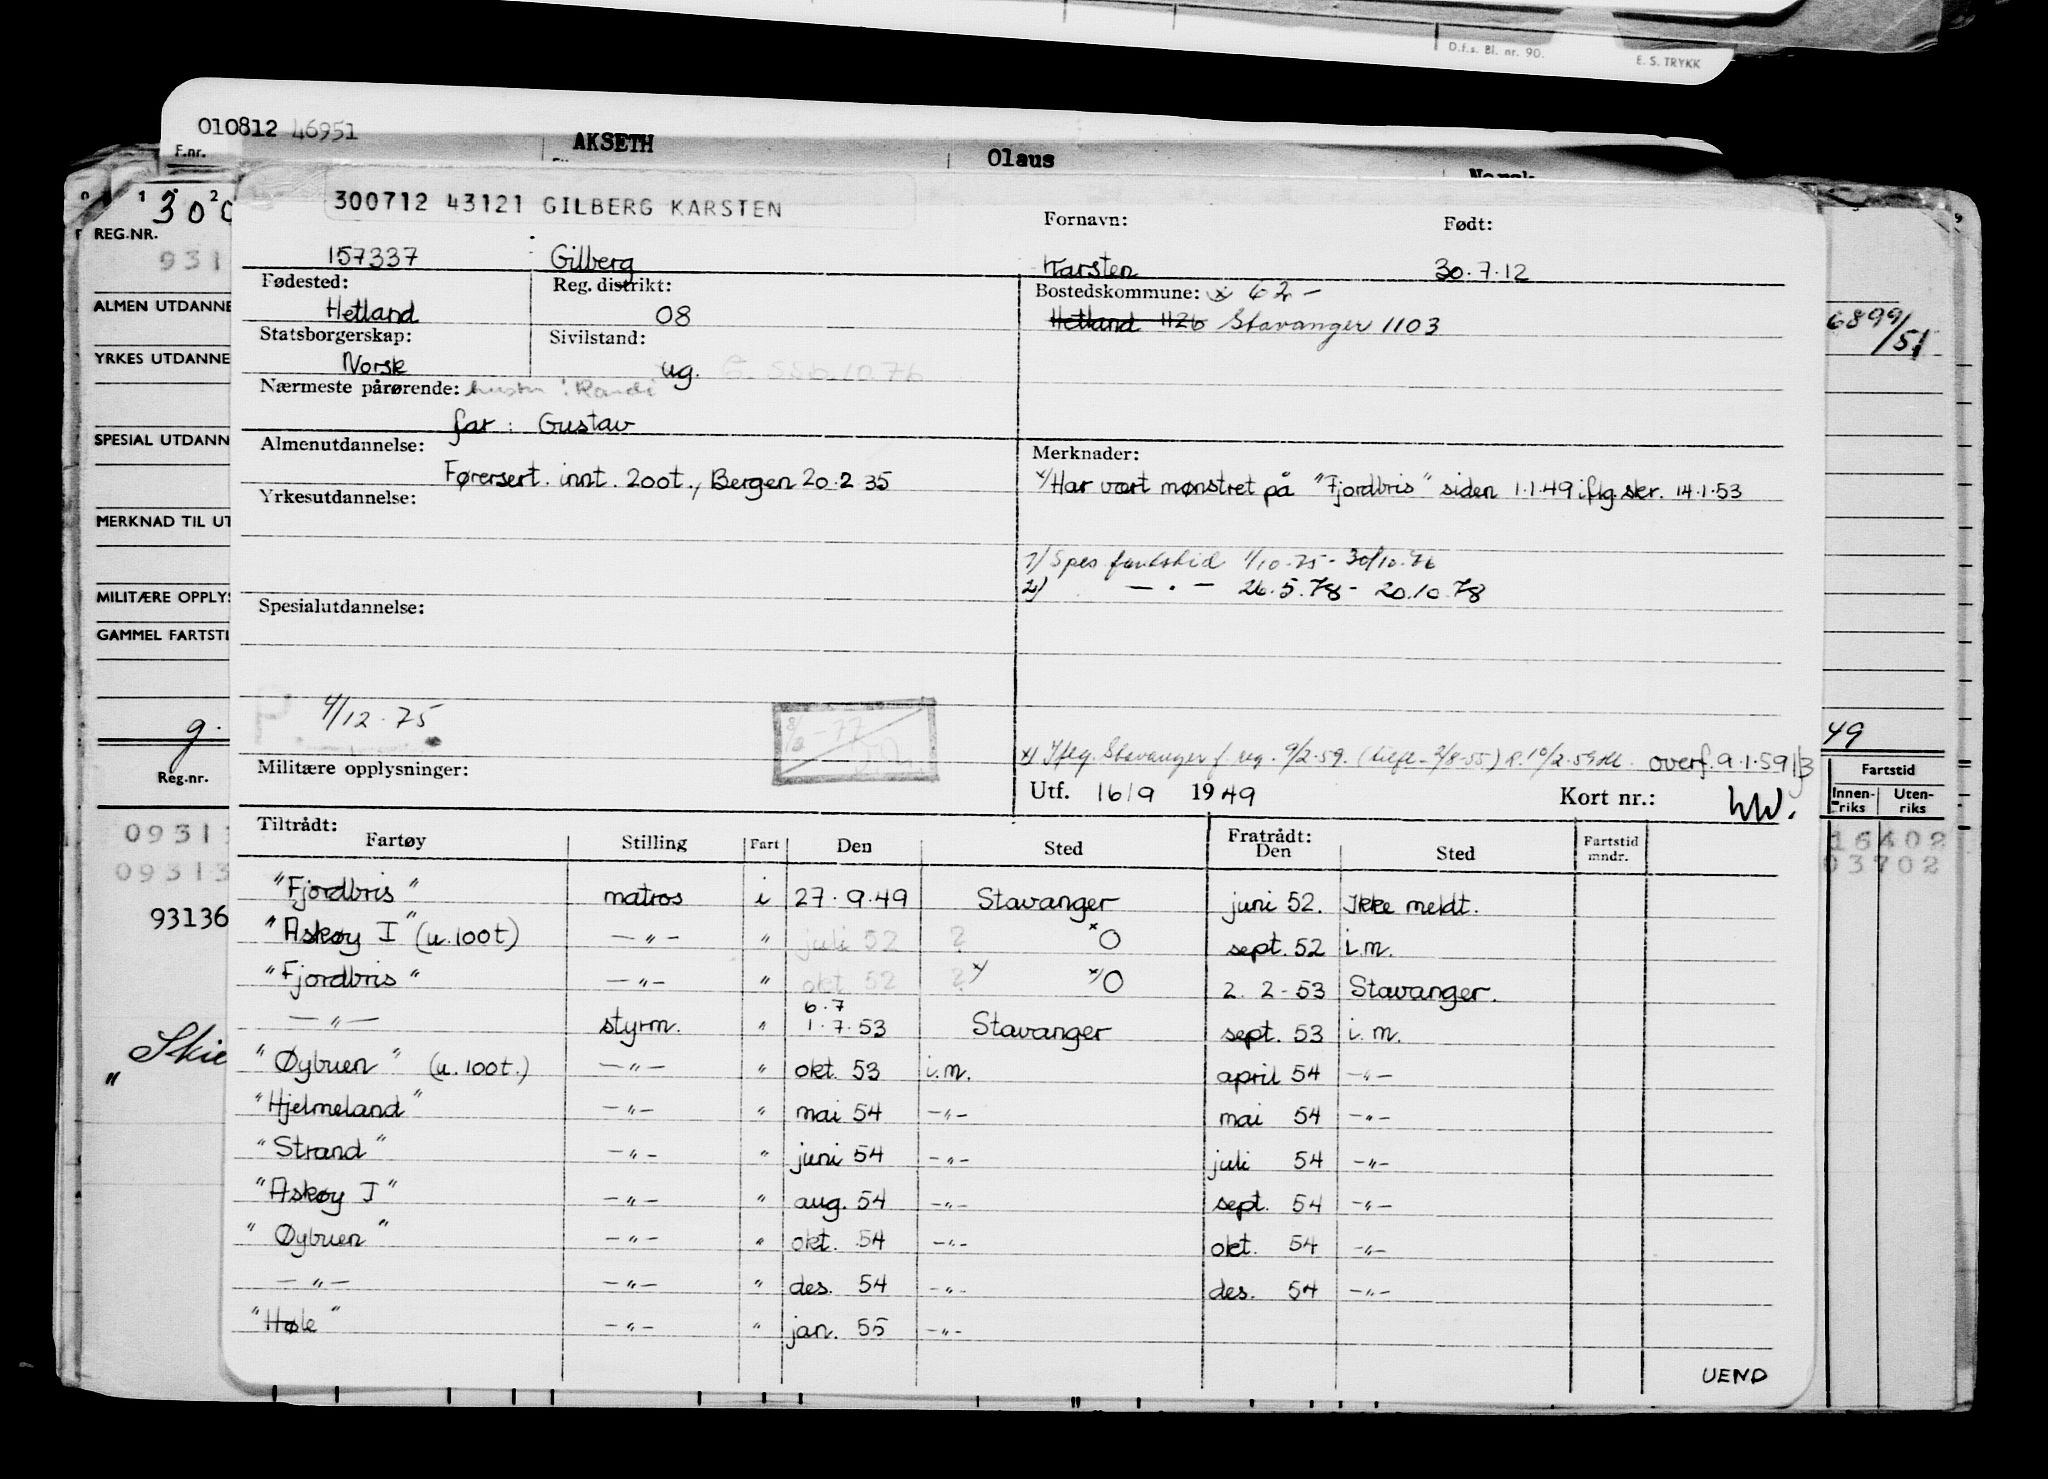 D.f.s. Bl. nr. 90.
E. S. TRYKK
010812 46951
AKSETH
Olaus
F.nr.
Norsk
1 2
30
300712 43121 GILBERG KARSTEN
Fornavn:
Født:
REG.NR.
931
157337 Gilberg Karsten 30.7.12
Fødested:
Reg. distrikt:
Bostedskommune: x 62-
ALMEN UTDANNE
Hetland 08 Hetland 1126 Stavanger 1103
6899/51
Statsborgerskap:
Sivilstand:
YRKES UTDANNE
Norsk ug. G. SSb.10.76
Nærmeste pårørende: hustru: Randi
far: Gustav
SPESIAL UTDANN
Almenutdannelse:
Merknader:
Førersert. innt. 200t., Bergen 20.2 35
x/Har vært mønstret på "Fjordbris" siden 1.1.49 iflg skr. 14.1.53
Yrkesutdannelse:
MERKNAD TIL UT
1) Spes fartstid 1/10.75 - 30/10.76
2) — . — 26.5.78 - 20.10.78
MILITÆRE OPPLYS
Spesialutdannelse:
GAMMEL FARTSTI
P. 4/12.75
-77
g.
49
x) Iflg. Stavanger f. reg. 9/2-59. overf. 9.1.59
Militære opplysninger:
Reg.nr.
Utf. 16/9 1949
Kort nr.:
Fartstid
Innen-riks
Uten-riks
Tiltrådt:
Fartøy Stilling Fart Den Sted
Fratrådt:
Den Sted
Fartstid mndr.
0931
16402
09313
03702
93136
Skie
"
"Fjordbris" matros i 27.9.49 Stavanger juni 52. Ikke meldt.
"Askøy I" (u.100t) —"— " juli 52 ? x O sept. 52 i.m.
"Fjordbris" —"— " okt 52 ? x/ x/O 2. 2-53 Stavanger.
6.7
—"— styrm. " 1.7.53 Stavanger sept. 53 i.m.
"Øybuen" (u.100t.) —"— " okt. 53 i.m. april 54 —"—
"Hjelmeland" —"— " mai 54 —"— mai 54 —"—
"Strand" —"— " juni 54 —"— juli 54 —"—
"Askøy I" —"— " aug. 54 —"— sept. 54 —"—
"Øybuen" —"— " okt. 54 —"— okt. 54 —"—
—"— —"— " des. 54 —"— des. 54 —"—
"Høle" —"— " jan. 55 —"—
UEND